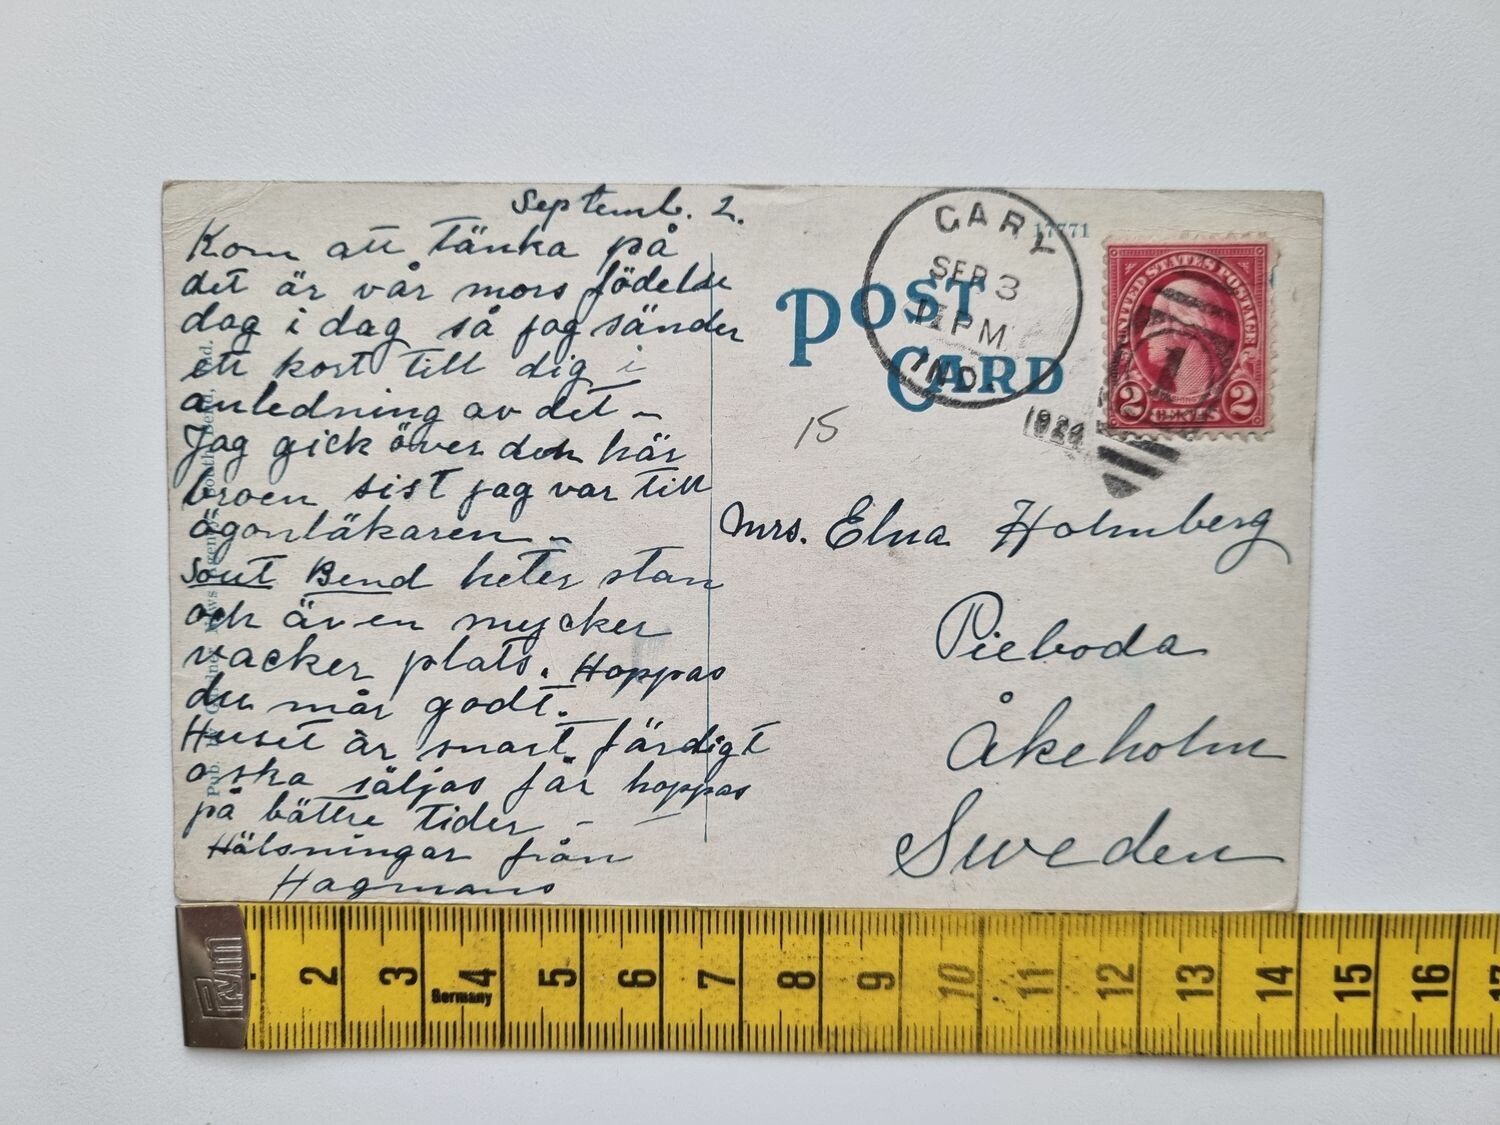 Septemb. 2.
Kom att tänka på
det är vår mors födelse
dag i dag så jag sänder
ett kort till dig i
anledning av det –
Jag gick över den här
broen sist jag var till
ögonläkaren –
Sout Bend heter stan
och även mycker
vacker plats. Hoppas
du mår godt.
Huset är snart färdigt
o ska säljas får hoppas
på bättre tider –
Hälsningar från
Hagmans
17771
POST
CARD
GARY
SEP 3
11 PM
IND.
1924
UNITED STATES POSTAGE
1
2 CENTS 2
15
Mrs. Elna Holmberg
Pieboda
Åkeholm
Sweden
Pub. News Agency, South Bend, Ind.
PYM
2 3 4 5 6 7 8 9 10 11 12 13 14 15 16 17
Germany